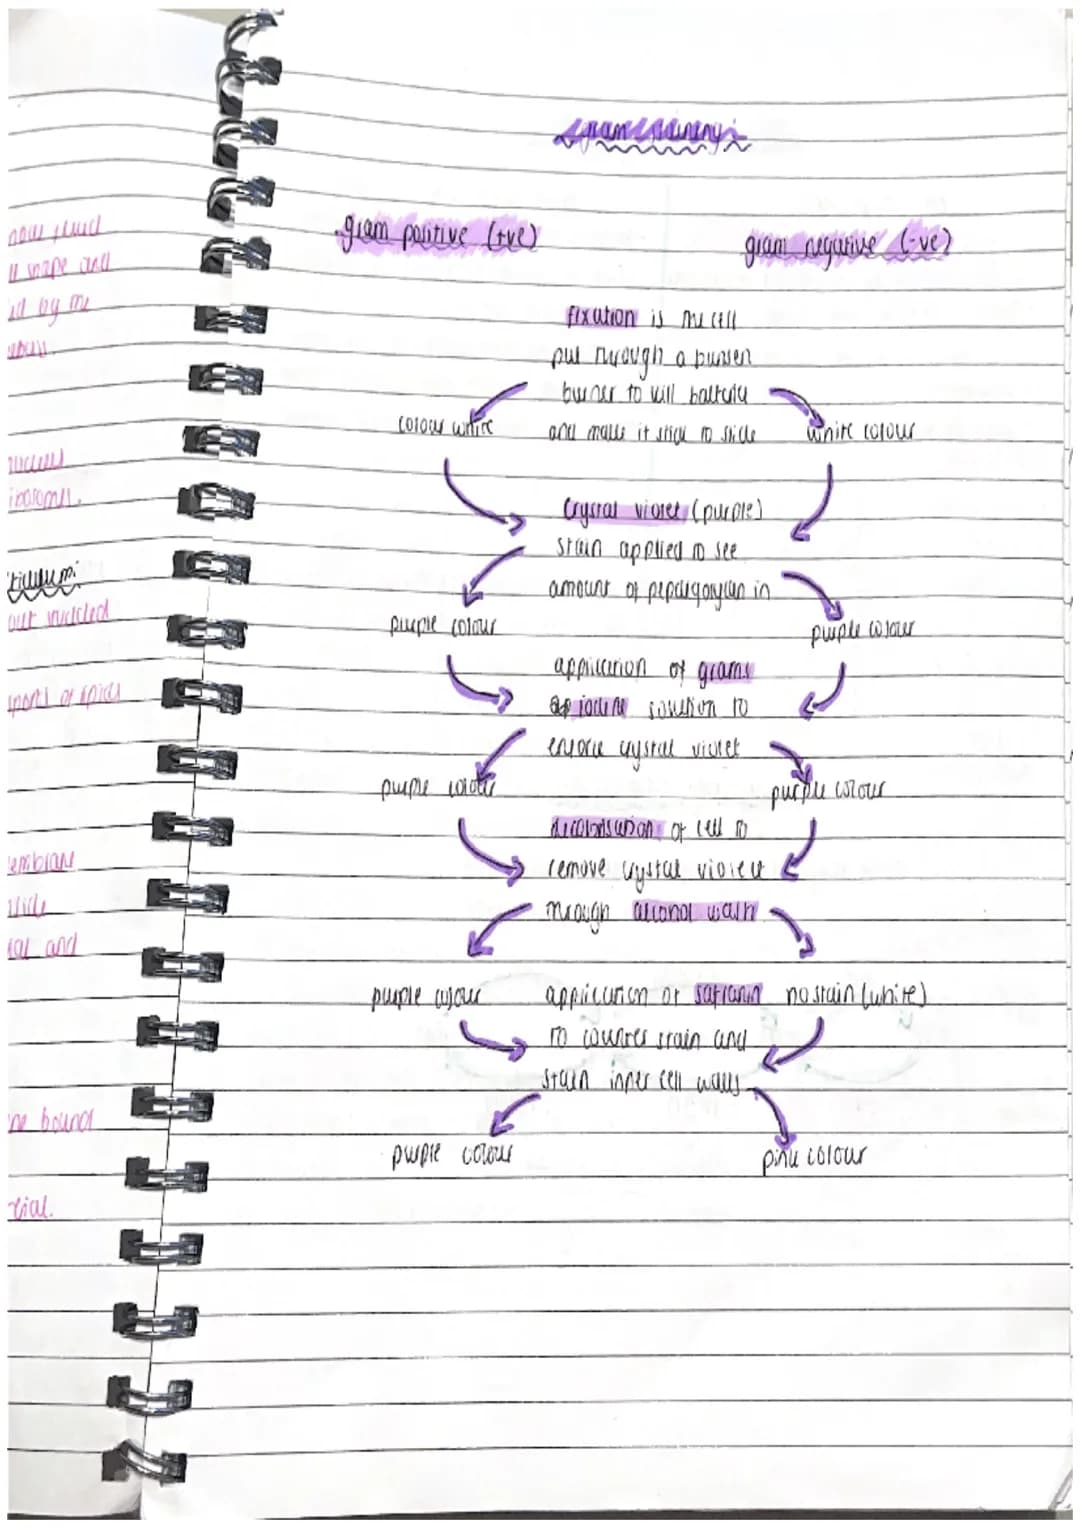 gram staining:
gram positive (+ve)
gram negative (-ve)
fixation is the cell
put through a bunsen
burner to kill bacteria
and make it stick to slide
colour white
white colour
Crystal violet (purple)
stain applied to see
amount of in
purple colour
purple colour
application of grams
iodine solution to
enforce crystal violet
purple colour
purple colour
decolorisation of cell to
remove crystal violet
through alcohol wash
purple colour
no stain (white)
application of safranin
to counter stain and
stain inner cell walls
purple colour
pink colour
shape and
by the
nucleus
ribosomes.
out
membrane
and
bound